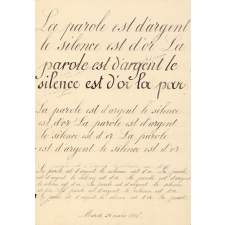 La parole est d'argent
le silence est d'or La
parole est d'argent le
silence est d'or la par
La parole est d'argent le silence
est d'or La parole est d'argent
le silence est d'or La parole
est d'argent le silence est d'or
La parole est d'argent le silence est d'or. La parole est
d'argent le silence est d'or. La parole est d'argent
le silence est d'or. La parole est d'argent le silence
Mardi 24 mars